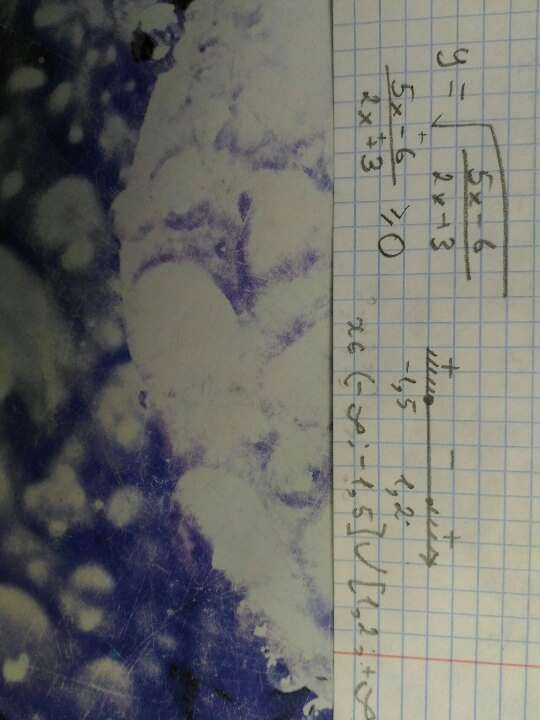 y = √((5x-6)/(2x+3))
(5x-6)/(2x+3) ≥ 0
+ - +
-1,5 1,2
x ∈ (-∞; -1,5] ∪ [1,2; +∞